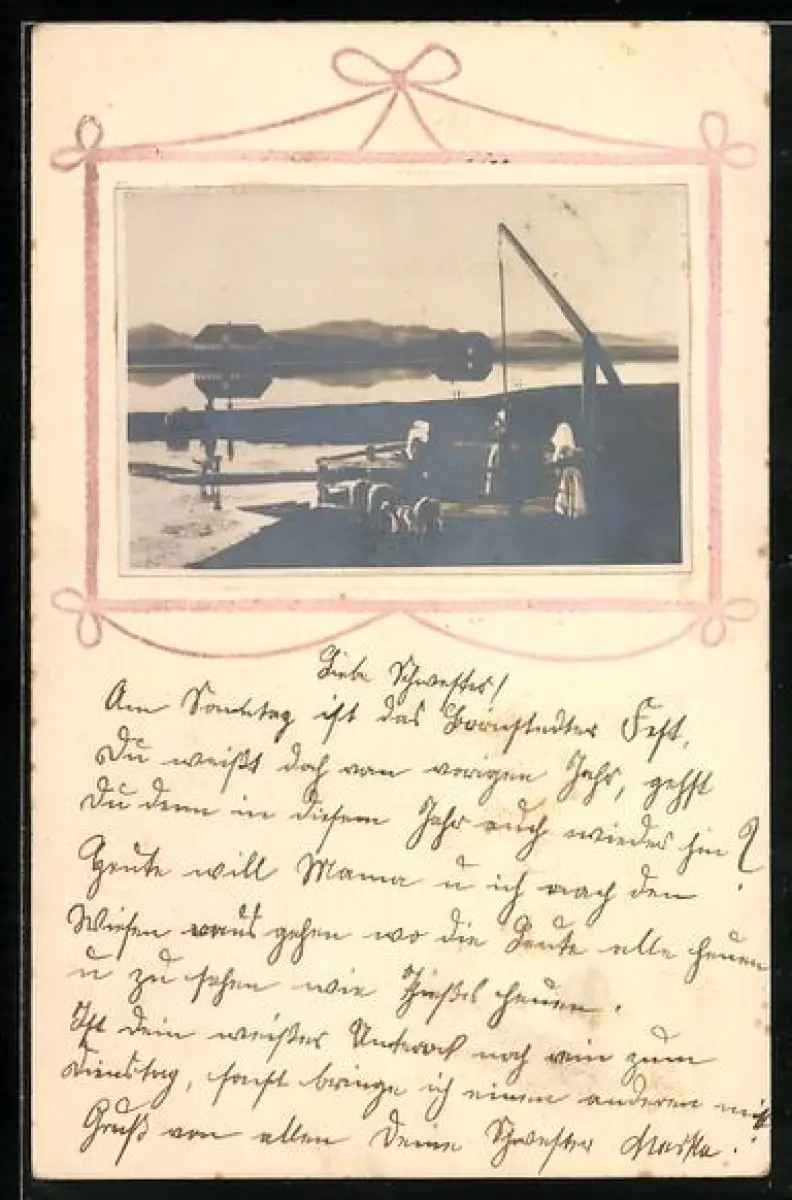 Liebe Schwester!
Am Sonntag ist das Bornstedter Fest,
Du weißt doch von vorigen Jahr, gehst
Du denn in diesem Jahr auch wieder hin?
Heute will Mama u ich nach den
Wiesen raus gehen wo die Leute alle heuen
u zu sehen wie heuen.
Ist dein weißer Unterrock noch rein zum
Dienstag, sonst bringe ich einen anderen mit
Gruß von allen Deine Schwester